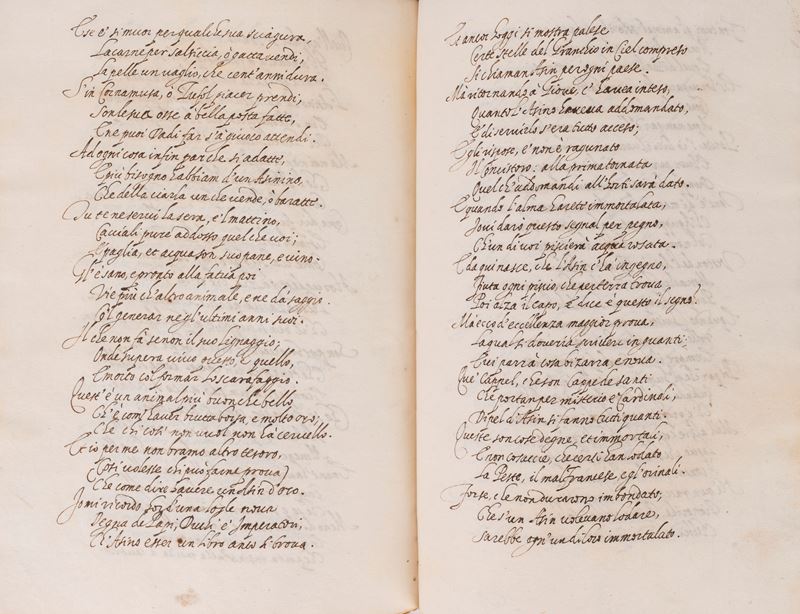 E se è si muor per quale sua sciagura,
La carne per salsiccia, o gatta vendi,
La pelle un vaglio, che cent'anni dura.
S'in Cornamusa, o Tufol piacer prendi,
Son le sue osse a bella posta fatte,
E ne puoi Dadi far s'a giuoco attendi.
Ad ogni cosa in fin par che si adatte,
E più bisogno habbiam d'un Asinino,
Che della vacca un che vende, o baratte.
Tu te ne servi la sera, e'l mattino,
Cacciali pure addosso quel che vuoi;
E paglia, et acqua son suo pane, e vino.
Gl'è sano, e pronto alla fatica poi
Vie più ch'altro animale, e ne dà saggio
Col generar negl'ultimi anni suoi.
Il che non fà se non il suo lignaggio;
Onde supera vivo questo e quello,
E morto col formar lo scarafaggio.
Quest'è un animal più buon che bello
Ch'è com'haver brutta borsa, e molto oro;
Che chi così non vuol non hà cervello.
Et io per me non bramo altro tesoro,
(Così volesse chi può farne prova)
Che come dire havere un Asin d'oro.
Jo mi ricordo
Degna de Papi, Duchi, e Imperatori;
Ch'Asino esser un libro anco si trova.
Et ancor hoggi si mostra palese
Certe Stelle del Granchio in Ciel compreso
Si chiaman Asin per ogni paese.
Ma ritornando a Giove, c'havea inteso,
Quanto l'Asino haveva addomandato,
E di servirlo s'era tutto acceso;
Egli rispose, e' non è ragunato
Il Consistoro: alla prima tornata
Quel ch'addomandi all'hor ti sarà dato.
E quando l'alma harete immortalata,
Jo vi darò questo segnal per pegno,
Ch'un di voi piscierà acqua rosata.
E da qui nasce, che l'Asin c'hà ingegno,
Fiuta ogni piscio, che per terra trova
Poi alza il capo, e dice è questo il segno?
Ma ecco d'eccellenza maggior prova,
La qual si doveria scrivere in quanti:
E vi parrà cosa bizarra, e nova.
Que' Cappel, che son Cappe de santi
Che portan per misterio e' Cardinali,
Di pel d'Asin si fanno tutti quanti.
Queste son cose degne, et immortali,
E non cosaccie, che certi han lodato
La Peste, il mal franzese, e gl'orinali.
Forse, che non durarono
Che s'un Asin volevano lodare,
Sarebbe ogn'un di loro immortalato.